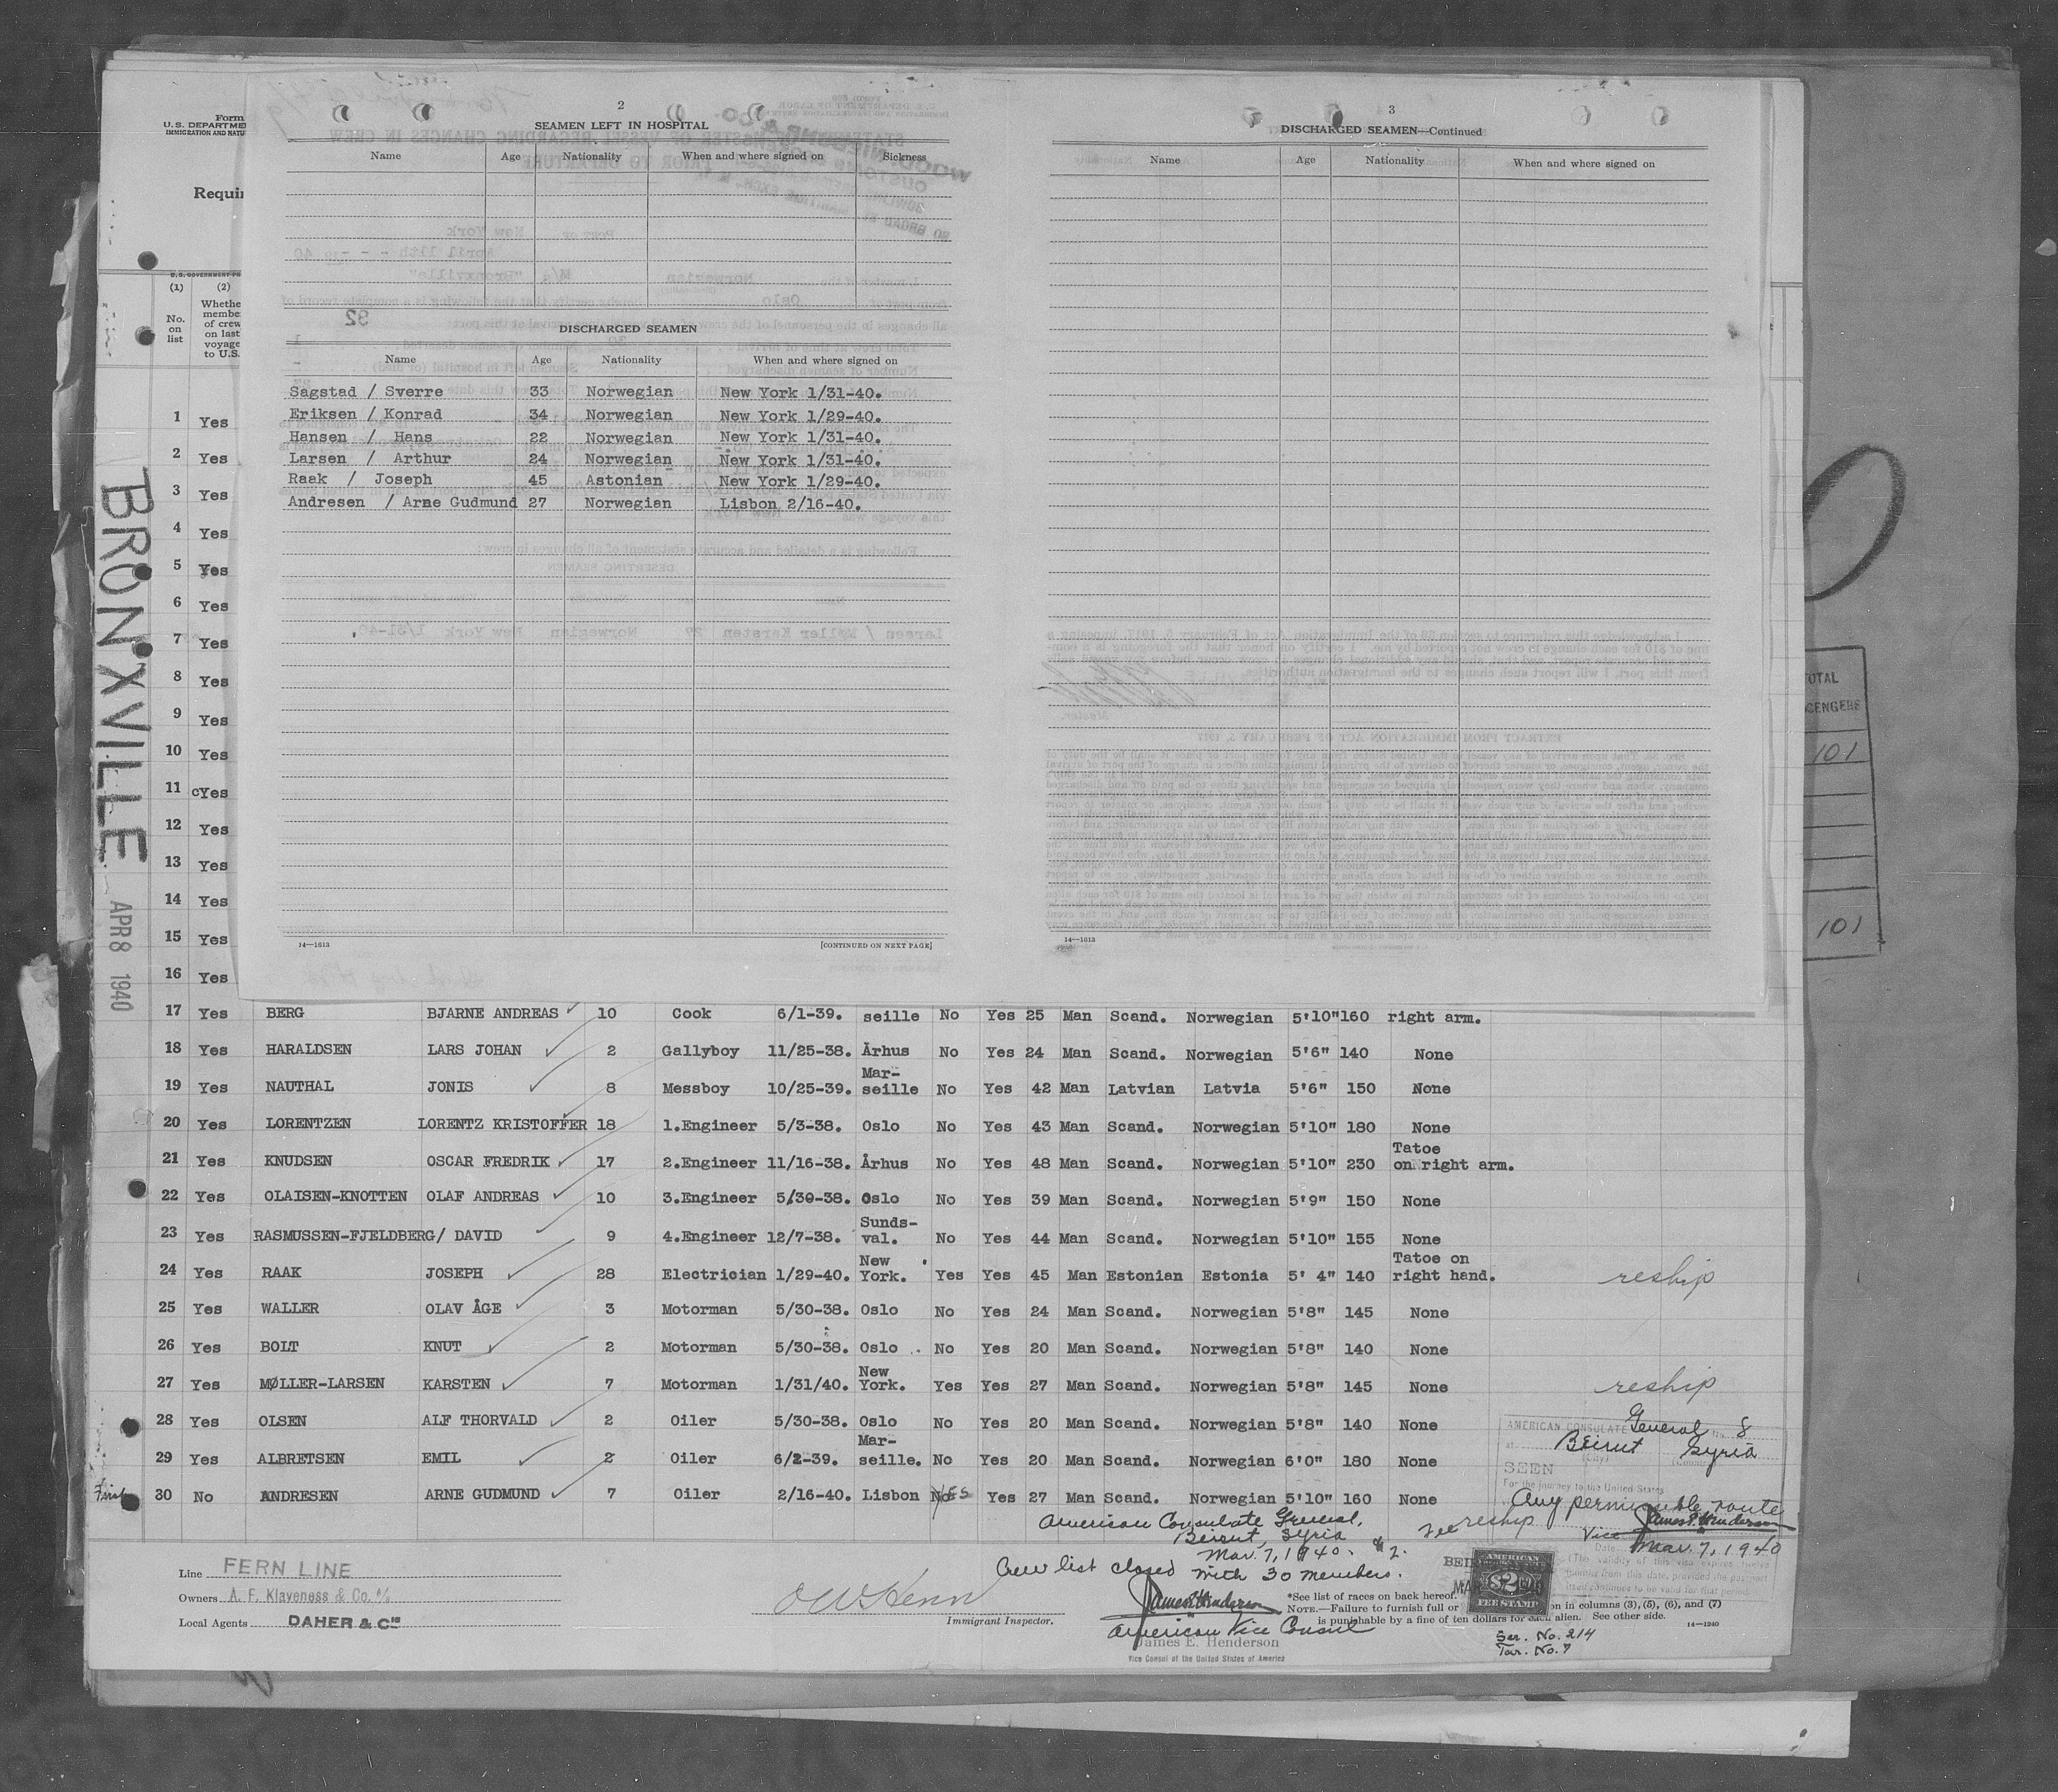 BRONXVILLE
APR 8 1940
Form
U.S. DEPARTME
IMMIGRATION AND NATU
Requi
(1) (2)
No. on list
Whethe
membe
of crew
on last
voyage
to U.S.
2
SEAMEN LEFT IN HOSPITAL
Name Age Nationality When and where signed on Sickness
DISCHARGED SEAMEN
Name Age Nationality When and where signed on
Sagstad / Sverre 33 Norwegian New York 1/31-40.
Eriksen / Konrad 34 Norwegian New York 1/29-40.
Hansen / Hans 22 Norwegian New York 1/31-40.
Larsen / Arthur 24 Norwegian New York 1/31-40.
Raak / Joseph 45 Astonian New York 1/29-40.
Andresen / Arne Gudmund 27 Norwegian Lisbon 2/16-40.
14—1613 [CONTINUED ON NEXT PAGE]
3
DISCHARGED SEAMEN—Continued
Name Age Nationality When and where signed on
14—1613
OTAL
ENGERS
101
101
1 Yes
2 Yes
3 Yes
4 Yes
5 Yes
6 Yes
7 Yes
8 Yes
9 Yes
10 Yes
11 Yes
12 Yes
13 Yes
14 Yes
15 Yes
16 Yes
17 Yes BERG BJARNE ANDREAS 10 Cook 6/1-39. seille No Yes 25 Man Scand. Norwegian 5'10" 160 right arm.
18 Yes HARALDSEN LARS JOHAN 2 Gallyboy 11/25-38. Århus No Yes 24 Man Scand. Norwegian 5'6" 140 None
19 Yes NAUTHAL JONIS 8 Messboy 10/25-39. Mar-seille No Yes 42 Man Latvian Latvia 5'6" 150 None
20 Yes LORENTZEN LORENTZ KRISTOFFER 18 1.Engineer 5/3-38. Oslo No Yes 43 Man Scand. Norwegian 5'10" 180 None
21 Yes KNUDSEN OSCAR FREDRIK 17 2.Engineer 11/16-38. Århus No Yes 48 Man Scand. Norwegian 5'10" 230 Tatoe on right arm.
22 Yes OLAISEN-KNOTTEN OLAF ANDREAS 10 3.Engineer 5/30-38. Oslo No Yes 39 Man Scand. Norwegian 5'9" 150 None
23 Yes RASMUSSEN-FJELDBERG/ DAVID 9 4.Engineer 12/7-38. Sunds-val. No Yes 44 Man Scand. Norwegian 5'10" 155 None
24 Yes RAAK JOSEPH 28 Electrician 1/29-40. New York. Yes Yes 45 Man Estonian Estonia 5' 4" 140 Tatoe on right hand. reship
25 Yes WALLER OLAV ÅGE 3 Motorman 5/30-38. Oslo No Yes 24 Man Scand. Norwegian 5'8" 145 None
26 Yes BOLT KNUT 2 Motorman 5/30-38. Oslo . No Yes 20 Man Scand. Norwegian 5'8" 140 None
27 Yes MØLLER-LARSEN KARSTEN 7 Motorman 1/31/40. New York. Yes Yes 27 Man Scand. Norwegian 5'8" 145 None reship
28 Yes OLSEN ALF THORVALD 2 Oiler 5/30-38. Oslo No Yes 20 Man Scand. Norwegian 5'8" 140 None
29 Yes ALBRETSEN EMIL 2 Oiler 6/2-39. Mar-seille. No Yes 20 Man Scand. Norwegian 6'0" 180 None
First 30 No ANDRESEN ARNE GUDMUND 7 Oiler 2/16-40. Lisbon No YES Yes 27 Man Scand. Norwegian 5'10" 160 None
reship
AMERICAN CONSULATE General No. 8
at Beirut Syria
(City) (Country)
SEEN
For the journey to the United States
Any permissible route
James E. Henderson
Vice
Date Mar. 7, 1940
American Consulate General,
Beirut, Syria
Mar. 7, 1940.
Crew list closed with 30 members.
James E. Henderson
American Vice Consul
James E. Henderson
Vice Consul of the United States of America
Line FERN LINE
Owners A. F. Klaveness & Co. A/S
Local Agents DAHER & Cie
Immigrant Inspector.
*See list of races on back hereof.
NOTE.—Failure to furnish full or on in columns (3), (5), (6), and (7)
is punishable by a fine of ten dollars for each alien. See other side.
14—1240
AMERICAN
$2
FEE STAMP
Ser. No. 214
Tar. No. 7